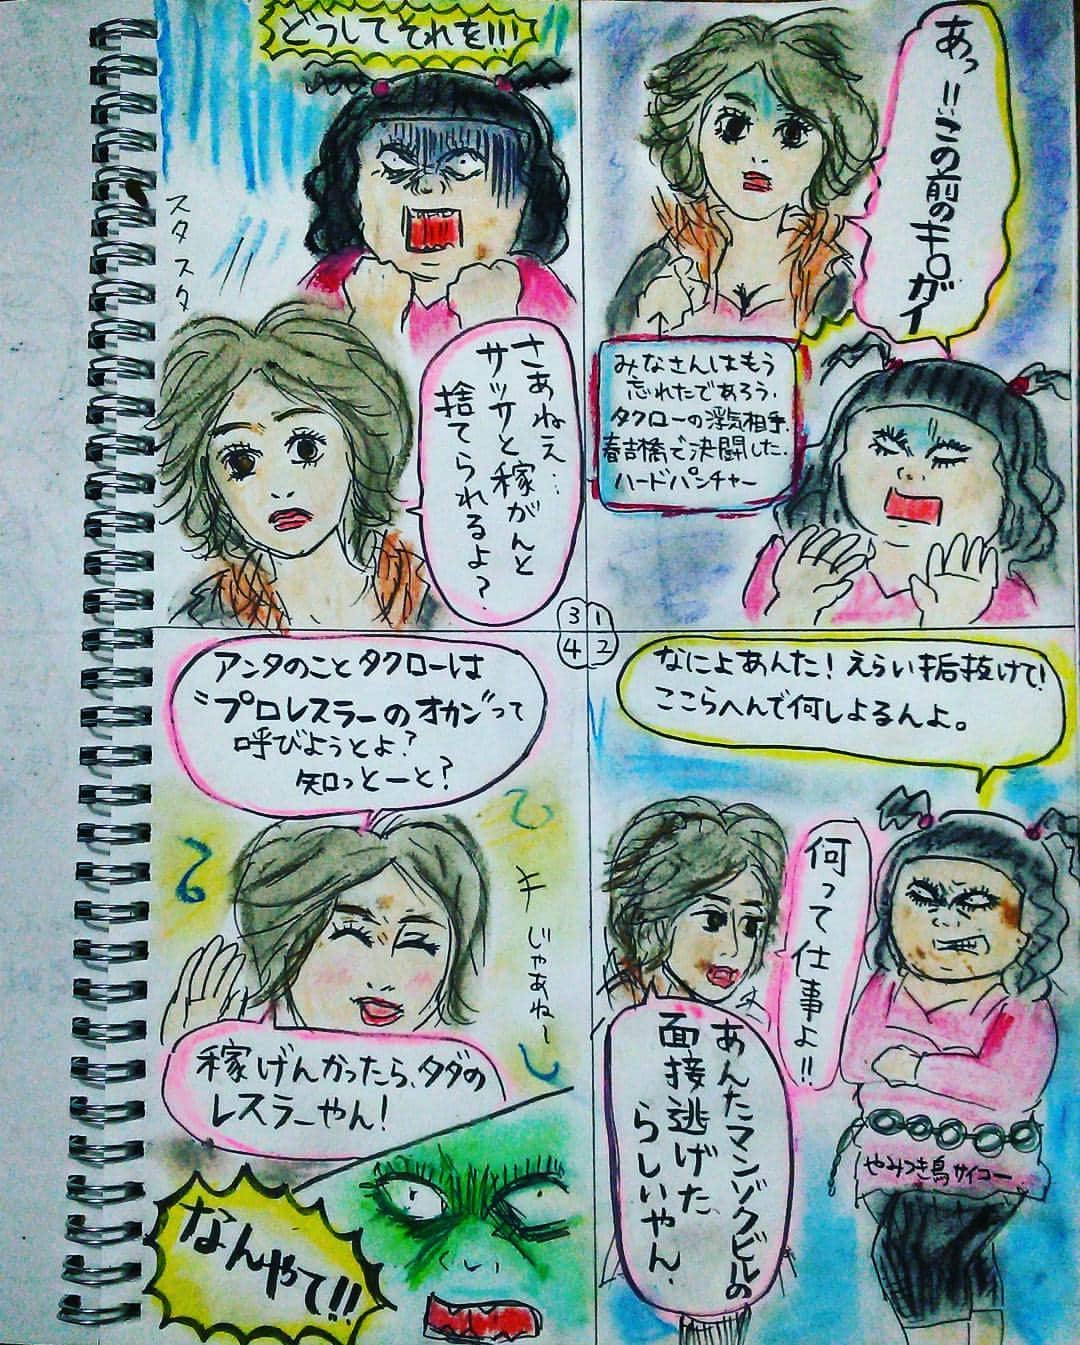 あっ!!この前のキロガイ
みなさんはもう
忘れたであろう.
タクローの浮気相手.
春吉橋で決闘した.
ハードパンチャー
1
2
3
4
なによあんた!えらい垢抜けて!
ここらへんで何しよるんよ。
何って仕事よ!!
あんたマンゾクビルの
面接逃げた
らしいやん.
やみつき鳥サイコー
どうしてそれを!!!
スタスタ
さあねえ…
サッサと稼がんと
捨てられるよ?
アンタのことタクローは
"プロレスラーのオカン"って
呼びようとよ?
知っとーと?
じゃあねー
稼げんかったら、タダの
レスラーやん!
なんやて!!